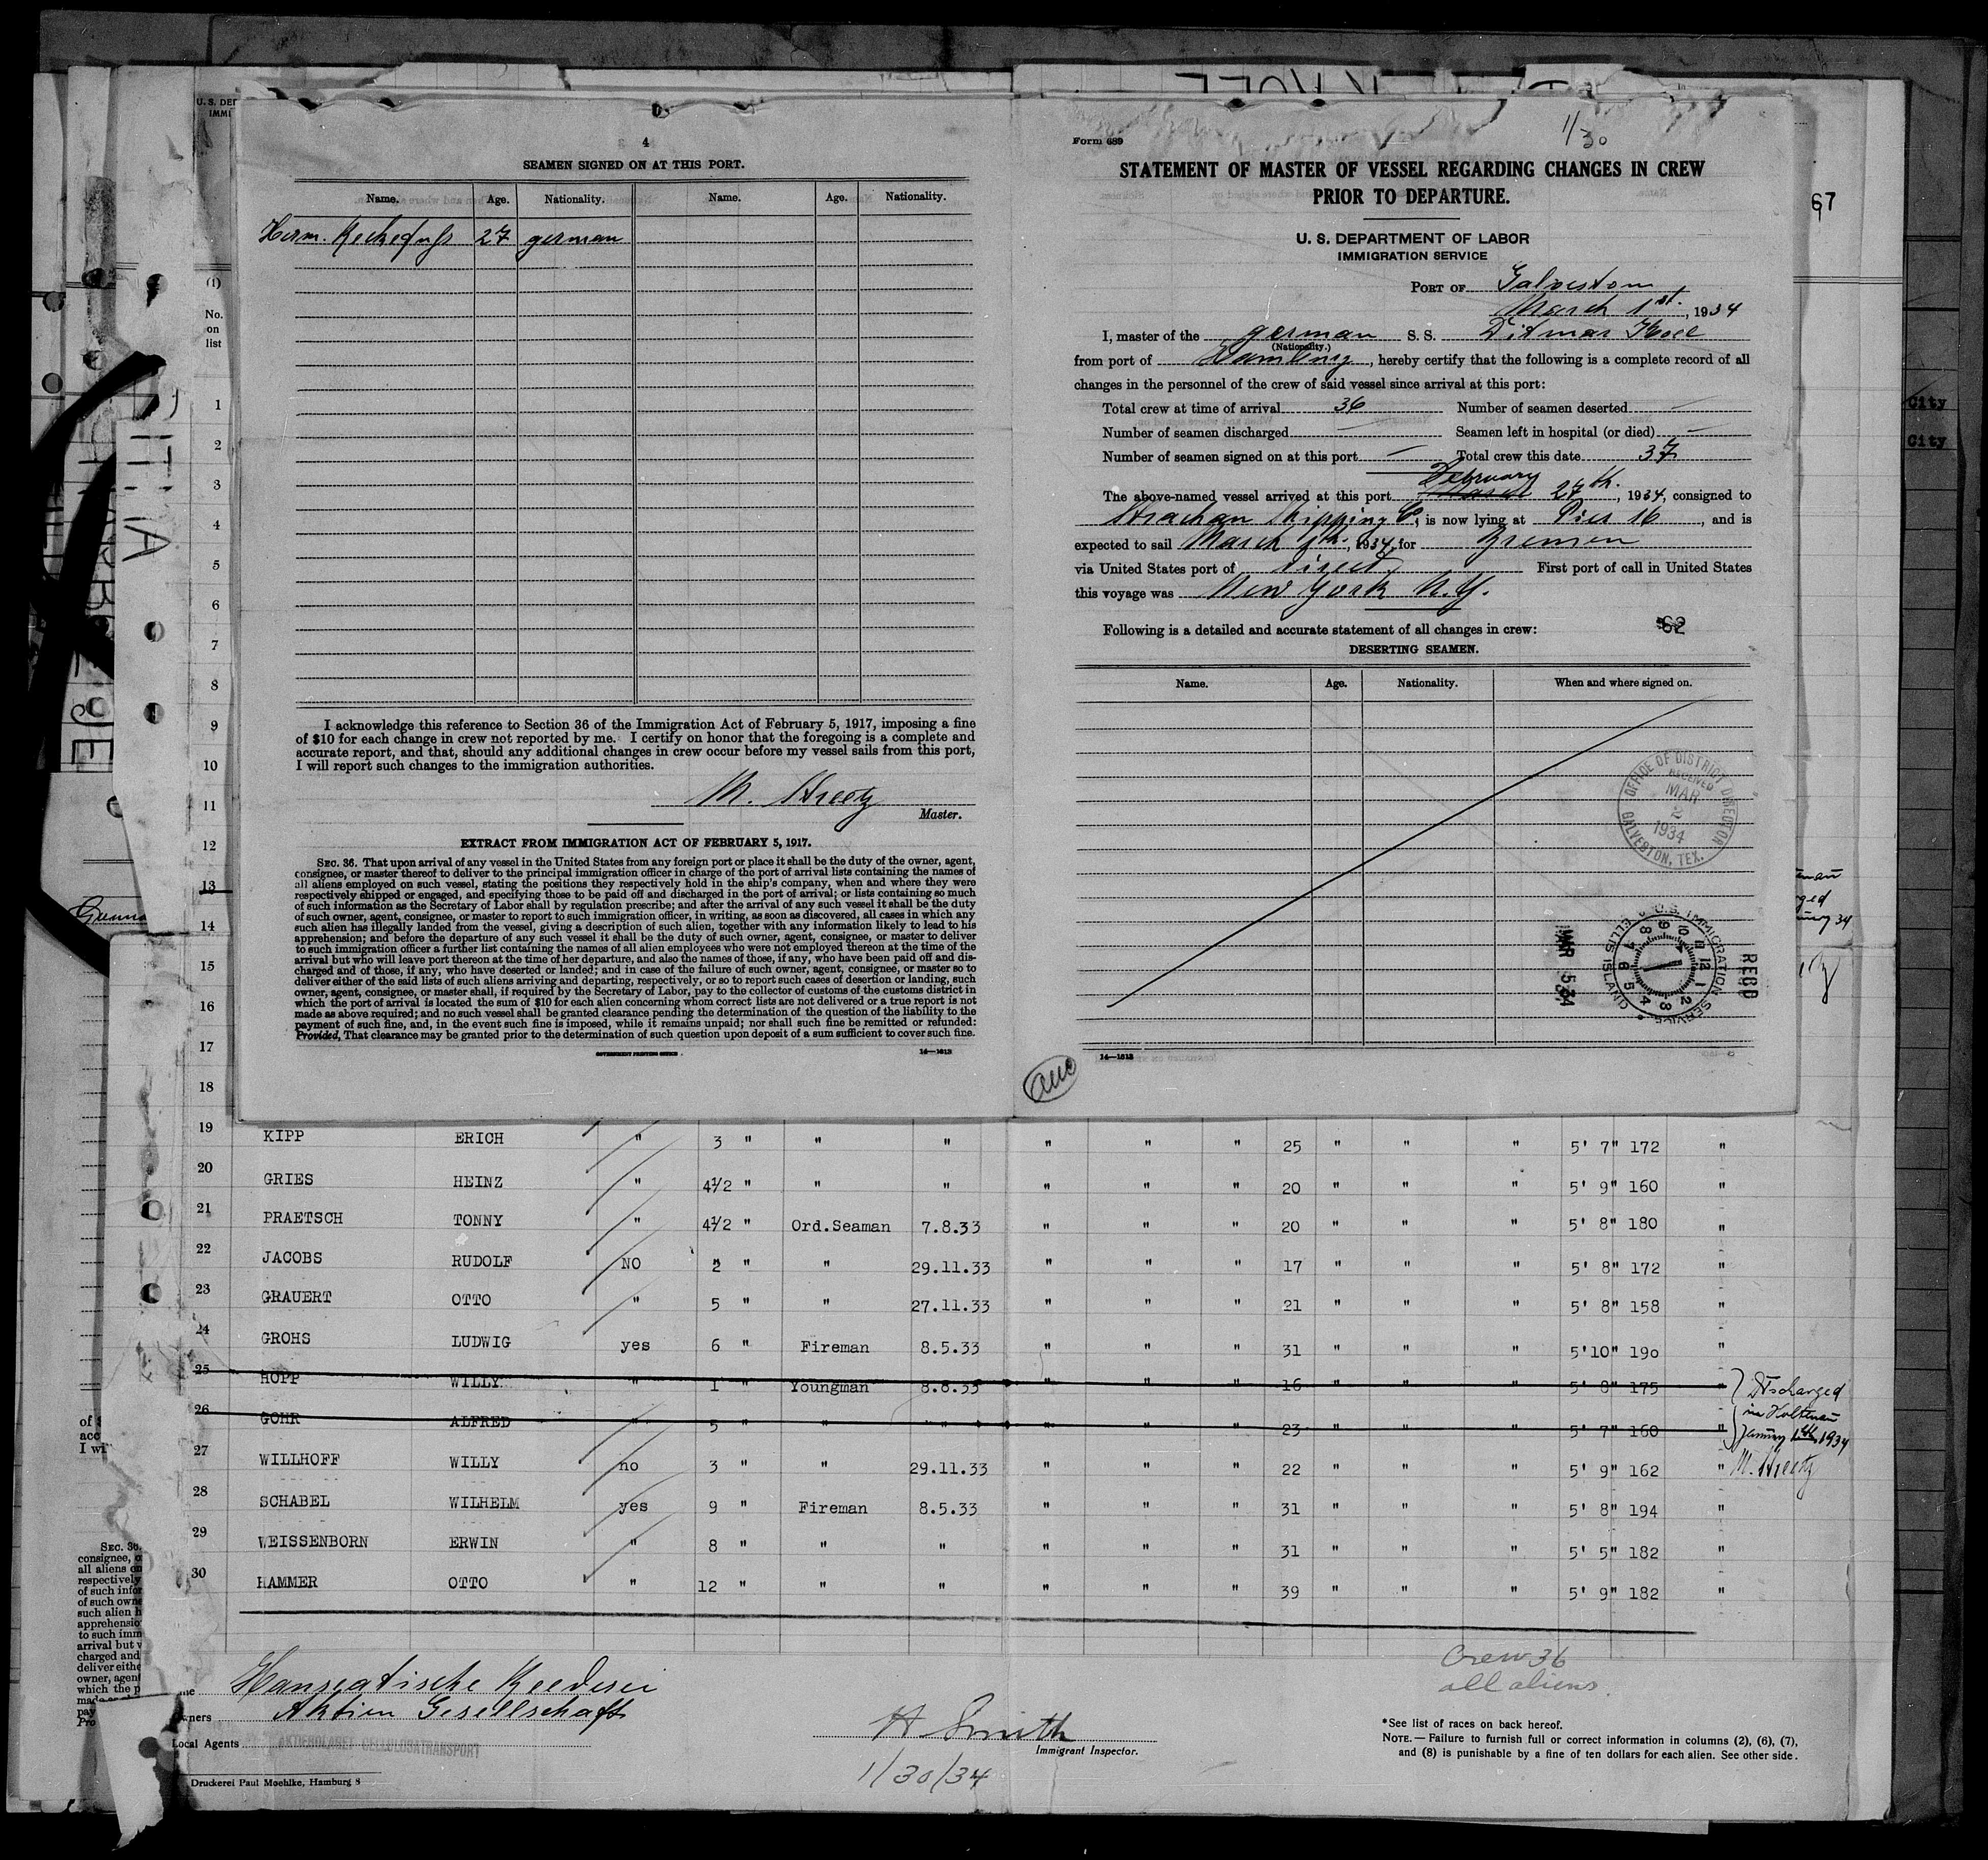 4
SEAMEN SIGNED ON AT THIS PORT.
Name. Age. Nationality. Name. Age. Nationality.
Herm. 27 german
I acknowledge this reference to Section 36 of the Immigration Act of February 5, 1917, imposing a fine
of $10 for each change in crew not reported by me. I certify on honor that the foregoing is a complete and
accurate report, and that, should any additional changes in crew occur before my vessel sails from this port,
I will report such changes to the immigration authorities.
M.
Master.
EXTRACT FROM IMMIGRATION ACT OF FEBRUARY 5, 1917.
SEC. 36. That upon arrival of any vessel in the United States from any foreign port or place it shall be the duty of the owner, agent,
consignee, or master thereof to deliver to the principal immigration officer in charge of the port of arrival lists containing the names of
all aliens employed on such vessel, stating the positions they respectively hold in the ship's company, when and where they were
respectively shipped or engaged, and specifying those to be paid off and discharged in the port of arrival; or lists containing so much
of such information as the Secretary of Labor shall by regulation prescribe; and after the arrival of any such vessel it shall be the duty
of such owner, agent, consignee, or master to report to such immigration officer, in writing, as soon as discovered, all cases in which any
such alien has illegally landed from the vessel, giving a description of such alien, together with any information likely to lead to his
apprehension; and before the departure of any such vessel it shall be the duty of such owner, agent, consignee, or master to deliver
to such immigration officer a further list containing the names of all alien employees who were not employed thereon at the time of the
arrival but who will leave port thereon at the time of her departure, and also the names of those, if any, who have been paid off and dis-
charged and of those, if any, who have deserted or landed; and in case of the failure of such owner, agent, consignee, or master so to
deliver either of the said lists of such aliens arriving and departing, respectively, or so to report such cases of desertion or landing, such
owner, agent, consignee, or master shall, if required by the Secretary of Labor, pay to the collector of customs of the customs district in
which the port of arrival is located the sum of $10 for each alien concerning whom correct lists are not delivered or a true report is not
made as above required; and no such vessel shall be granted clearance pending the determination of the question of the liability to the
payment of such fine, and, in the event such fine is imposed, while it remains unpaid; nor shall such fine be remitted or refunded:
Provided, That clearance may be granted prior to the determination of such question upon deposit of a sum sufficient to cover such fine.
GOVERNMENT PRINTING OFFICE 14—1613
Form 689
1/30
STATEMENT OF MASTER OF VESSEL REGARDING CHANGES IN CREW
PRIOR TO DEPARTURE.
U. S. DEPARTMENT OF LABOR
IMMIGRATION SERVICE
PORT OF Galveston
March 1st., 1934
I, master of the german S. S. Ditmar Koel
(Nationality.)
from port of Hamburg, hereby certify that the following is a complete record of all
changes in the personnel of the crew of said vessel since arrival at this port:
Total crew at time of arrival 36 Number of seamen deserted —
Number of seamen discharged — Seamen left in hospital (or died) —
Number of seamen signed on at this port — Total crew this date 37
February
The above-named vessel arrived at this port March 27th., 1934, consigned to
Strachan Shipping Co, is now lying at Pier 16, and is
expected to sail March, 1934, for Bremen
via United States port of direct First port of call in United States
this voyage was New York N.Y.
Following is a detailed and accurate statement of all changes in crew: 62
DESERTING SEAMEN.
Name. Age. Nationality. When and where signed on.
OFFICE OF DISTRICT DIRECTOR
RECEIVED
MAR
2
1934
GALVESTON, TEX.
RECD
U.S. IMMIGRATION SERVICE
ELLIS ISLAND
MAR 5 34
14—1613
67
City
City
U. S. DEP
IMMI
(1)
No.
on
list
1
2
3
4
5
6
7
8
9
10
11
12
13
14
15
16
17
18
19 KIPP ERICH " 3 " " " " " " 25 " " " 5' 7" 172 "
20 GRIES HEINZ " 4½ " " " " " " 20 " " " 5' 9" 160 "
21 PRAETSCH TONNY " 4½ " Ord.Seaman 7.8.33 " " " 20 " " " 5' 8" 180 "
22 JACOBS RUDOLF NO 2 " " 29.11.33 " " " 17 " " " 5' 8" 172 "
23 GRAUERT OTTO " 5 " " 27.11.33 " " " 21 " " " 5' 8" 158 "
24 GROHS LUDWIG yes 6 " Fireman 8.5.33 " " " 31 " " " 5'10" 190 "
25 HOPP WILLY " 1 " Youngman 8.8.33 " " " 16 " " " 5' 8" 175 " Discharged
26 GOHR ALFRED " 5 " " " " " " 23 " " " 5' 7" 160 " in Holtenau
January 1934
27 WILLHOFF WILLY no 3 " " 29.11.33 " " " 22 " " " 5' 9" 162 " M.
28 SCHABEL WILHELM yes 9 " Fireman 8.5.33 " " " 31 " " " 5' 8" 194 "
29 WEISSENBORN ERWIN " 8 " " " " " " 31 " " " 5' 5" 182 "
30 HAMMER OTTO " 12 " " " " " " 39 " " " 5' 9" 182 "
Crew 36
all aliens
Hanseatische Reederei
Owners Aktien Gesellschaft
Local Agents AKTIEBOLAGET CELLULOSATRANSPORT
H Smith
Immigrant Inspector.
1/30/34
*See list of races on back hereof.
NOTE.—Failure to furnish full or correct information in columns (2), (6), (7),
and (8) is punishable by a fine of ten dollars for each alien. See other side.
Druckerei Paul Moehlke, Hamburg 8